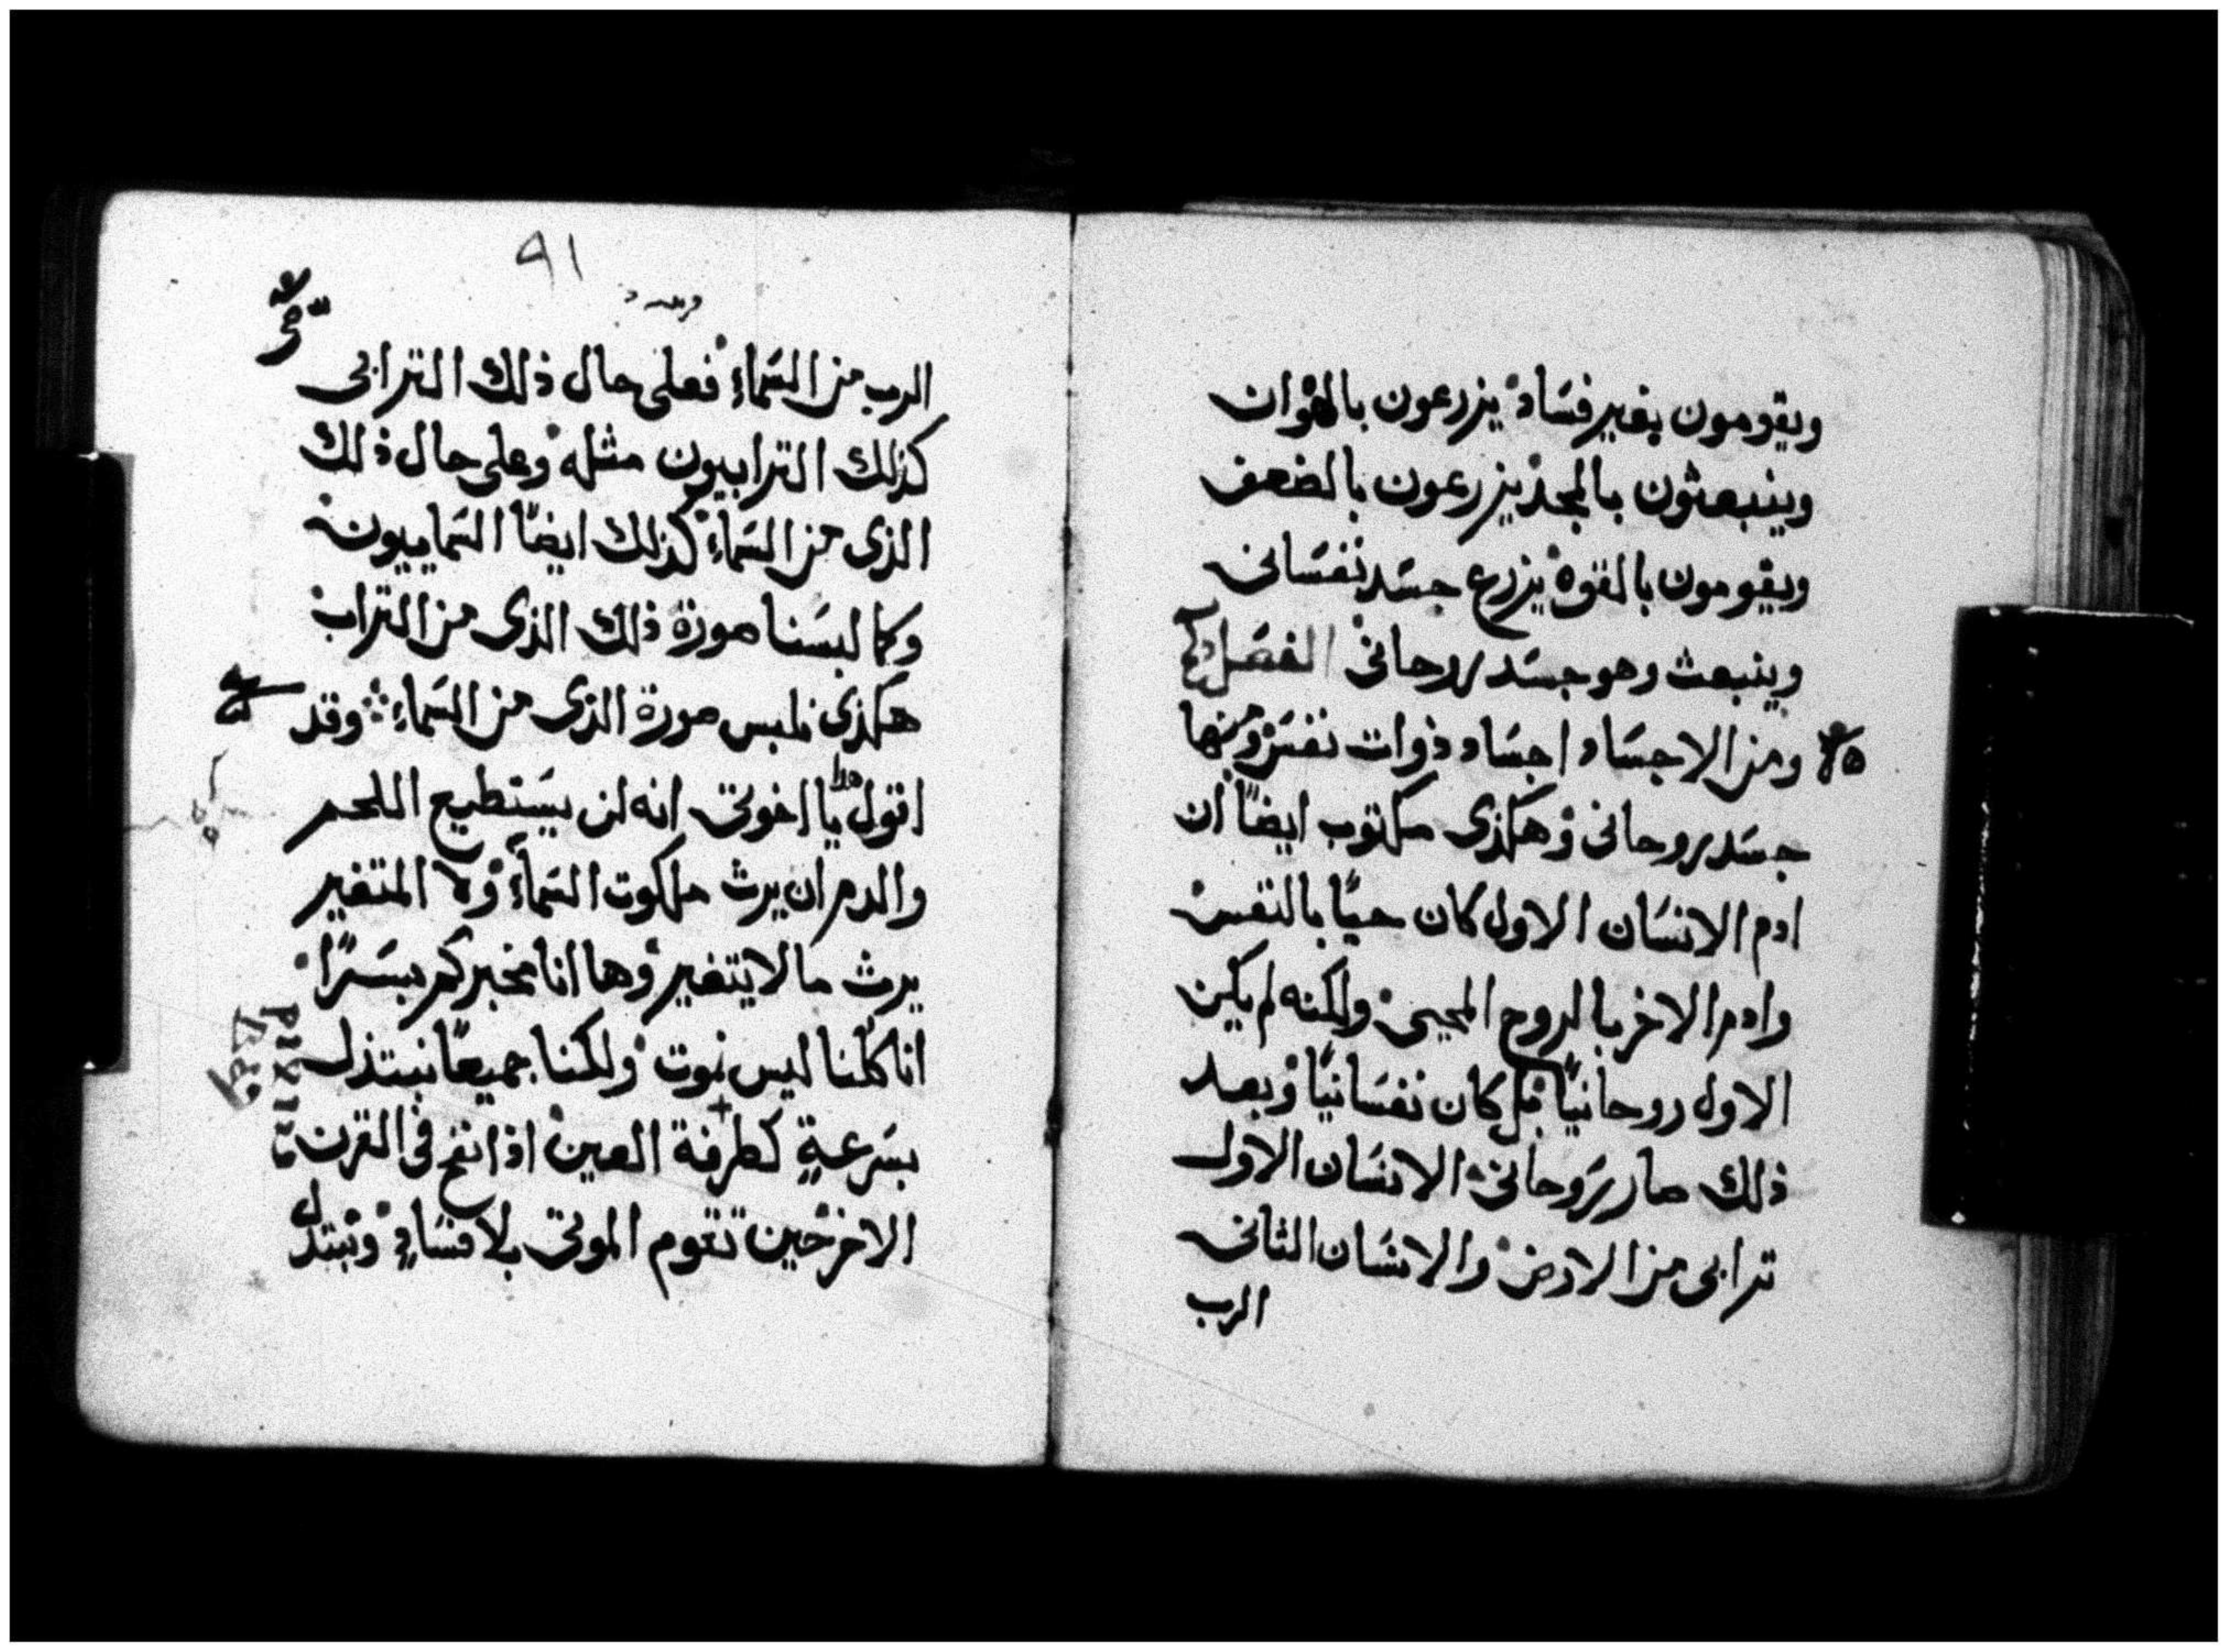 ويقومون بغير فساد يزرعون بالهوان
وينبعثون بالمجد يزرعون بالضعف
ويقومون بالقوة يزرع جسد نفسانى
وينبعث وهو جسد روحانى الفصل
ومن الاجساد اجساد ذوات نفس ومنها
جسد روحانى وهكذى مكتوب ايضًا ان
ادم الانسان الاول كان حيًا بالنفس
وادم الاخر بالروح المحيى ولكنه لم يكن
الاول روحانيًا بل كان نفسانيًا وبعد
ذلك صار روحانى الانسان الاول
ترابى من الارض والانسان الثانى
الرب
٩١
الرب من السماء فعلى حال ذلك الترابى
كذلك الترابيون مثله وعلى حال ذلك
الذى من السماء كذلك ايضًا السماييون
وكما لبسنا صورة ذلك الذى من التراب
هكذى نلبس صورة الذى من السماء وقد
اقول يا اخوتى انه لن يستطيع اللحم
والدم ان يرث ملكوت السماء ولا المتغير
يرث ما لا يتغير وها انا مخبركم بسرًا
انا كلنا ليس نموت ولكنا جميعًا نبتدل
بسرعةٍ كطرفة العين اذا نفخ فى القرن
الاخر حين تقوم الموتى بلا فسادٍ ونبتدل